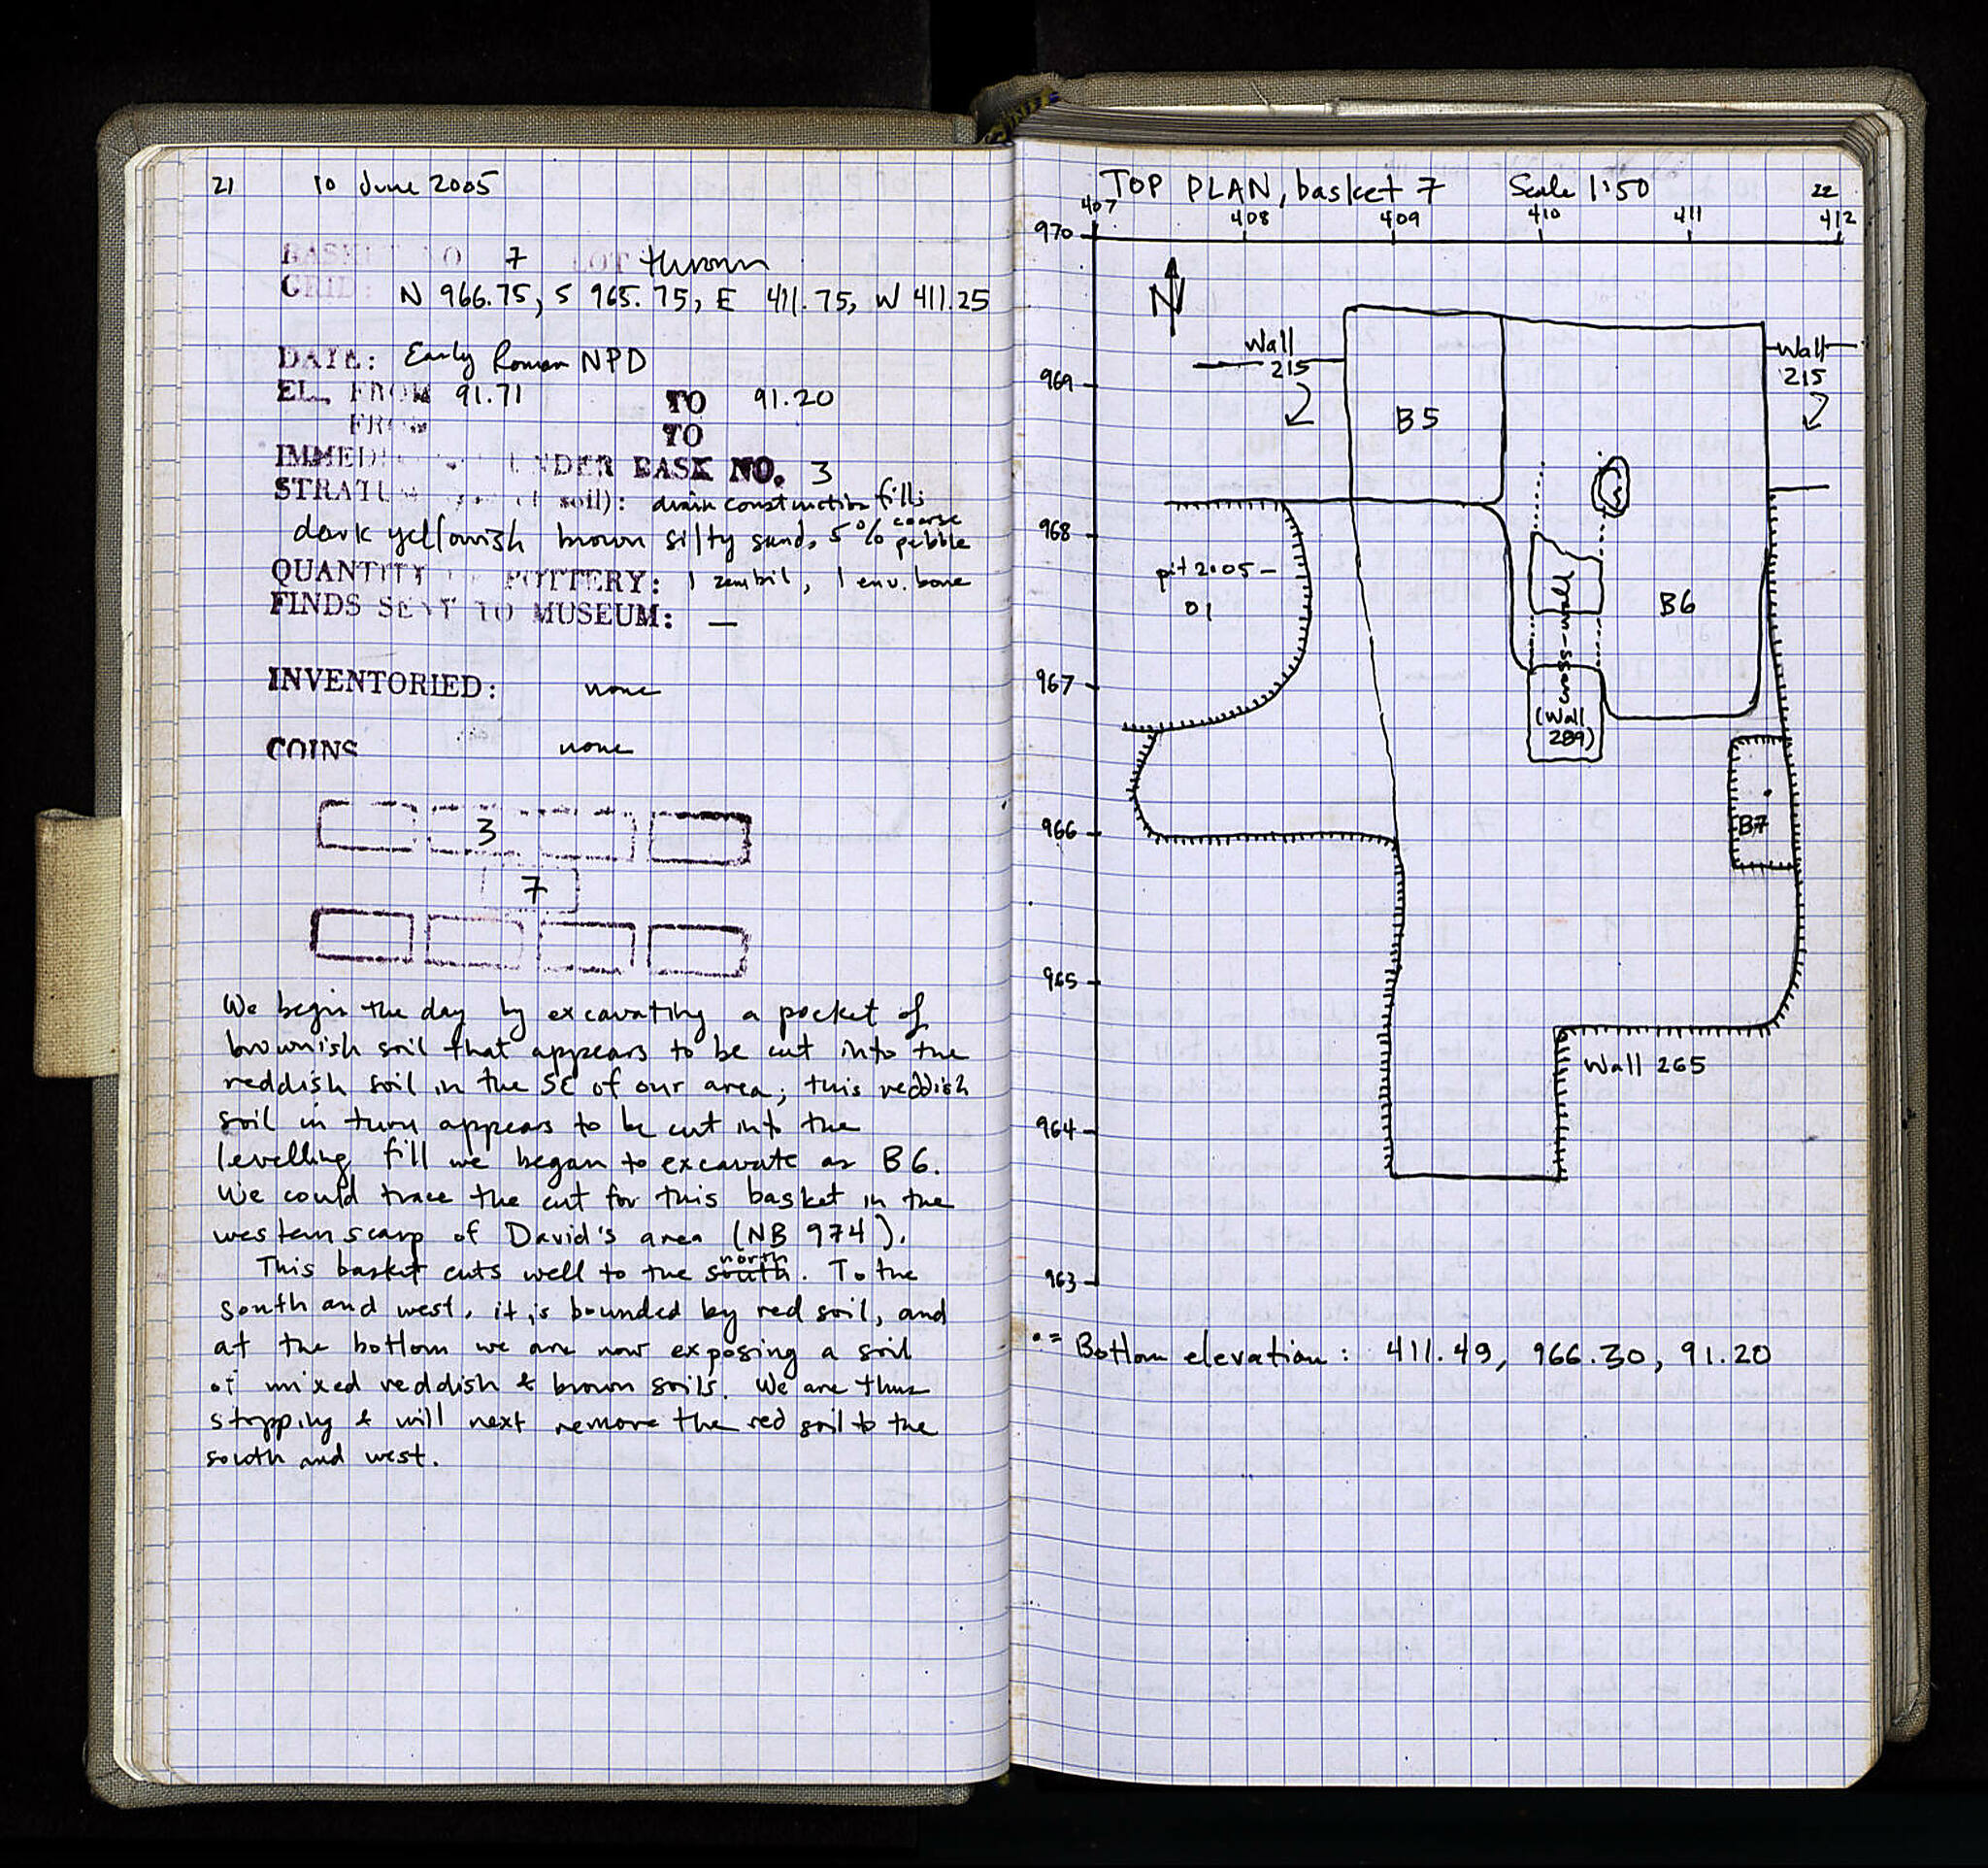 21 10 June 2005
BASKET NO 7 LOT thrown
GRID: N 966.75, S 965.75, E 411.75, W 411.25
DATE: Early Roman NPD
EL. FROM 91.71 TO 91.20
FROM TO
IMMED UNDER BASK NO. 3
STRATU soil): drain construction fill;
dark yellowish brown silty sand, 5% coarse pebble
QUANTITY OF POTTERY: 1 zembil, 1 env. bone
FINDS SENT TO MUSEUM: —
INVENTORIED: none
COINS none
3
7
We begin the day by excavating a pocket of
brownish soil that appears to be cut into the
reddish soil in the SE of our area; this reddish
soil in turn appears to be cut into the
levelling fill we began to excavate as B6.
We could trace the cut for this basket in the
western scarp of David's area (NB 974).
This basket cuts well to the south north. To the
south and west, it is bounded by red soil, and
at the bottom we are now exposing a soil
of mixed reddish & brown soils. We are thus
stopping & will next remove the red soil to the
south and west.
TOP PLAN, basket 7 Scale 1:50 22
407 408 409 410 411 412
970
N
Wall 215
Wall 215
969
B5
968
pit 2005-
01
B6
967
(Wall
289)
966
B7
965
Wall 265
964
963
• = Bottom elevation: 411.49, 966.30, 91.20